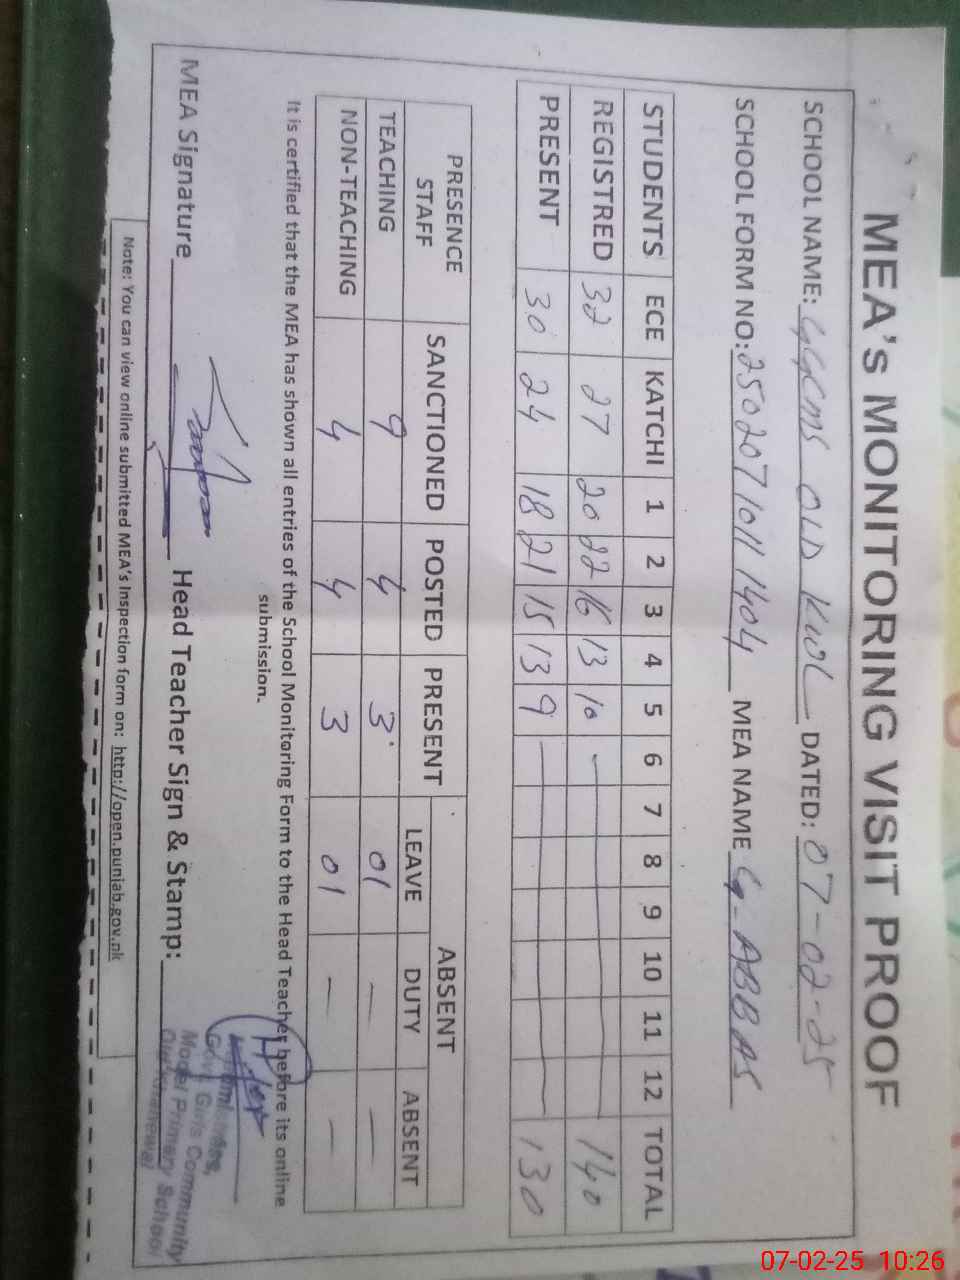 MEA's MONITORING VISIT PROOF
SCHOOL NAME: GGCMS OLD KWL DATED: 07-02-25
SCHOOL FORM NO: 25020710111404 MEA NAME G. ABBAS
STUDENTS ECE KATCHI 1 2 3 4 5 6 7 8 9 10 11 12 TOTAL
REGISTRED 32 27 20 22 16 13 10 140
PRESENT 30 24 18 21 15 13 9 130
PRESENCE STAFF SANCTIONED POSTED PRESENT ABSENT
LEAVE DUTY ABSENT
TEACHING 9 4 3 01 — —
NON-TEACHING 4 4 3 01 — —
It is certified that the MEA has shown all entries of the School Monitoring Form to the Head Teacher before its online
submission.
MEA Signature Head Teacher Sign & Stamp:
Govt Girls Community
Model Primary School
Note: You can view online submitted MEA's Inspection form on: http://open.punjab.gov.pk
07-02-25 10:26